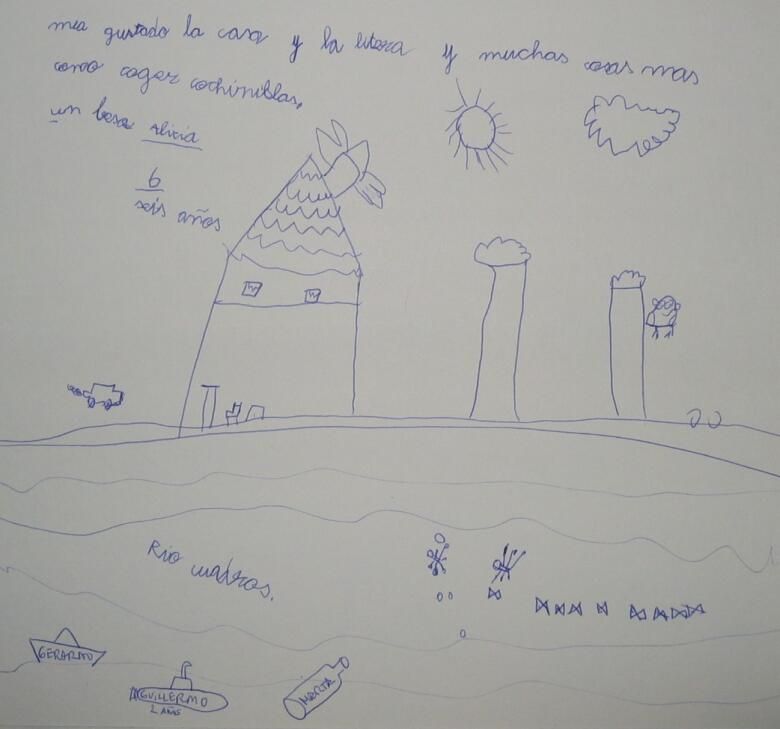 mea gustado la casa y la litera y muchas cosas mas
como coger cochinibllas,
un beso Alicia
6
seis años
Rio cuadros.
GERARDO
GUILLERMO
2 AÑOS
MARTA